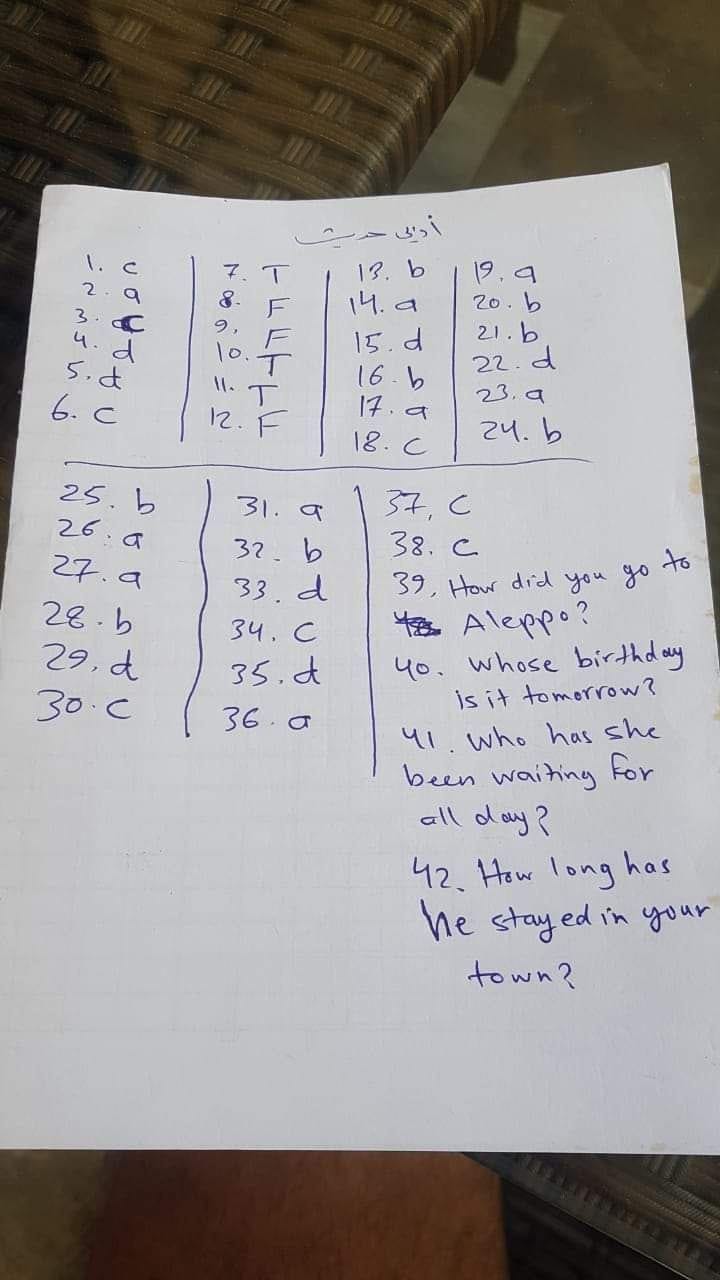 أدبي حديث
1. c
2. a
3. c
4. d
5. d
6. c
7. T
8. F
9. F
10. T
11. T
12. F
13. b
14. a
15. d
16. b
17. a
18. c
19. a
20. b
21. b
22. d
23. a
24. b
25. b
26. a
27. a
28. b
29. d
30. c
31. a
32. b
33. d
34. c
35. d
36. a
37. c
38. c
39. How did you go to
Aleppo?
40. whose birthday
is it tomorrow?
41. who has she
been waiting for
all day?
42. How long has
he stayed in your
town?